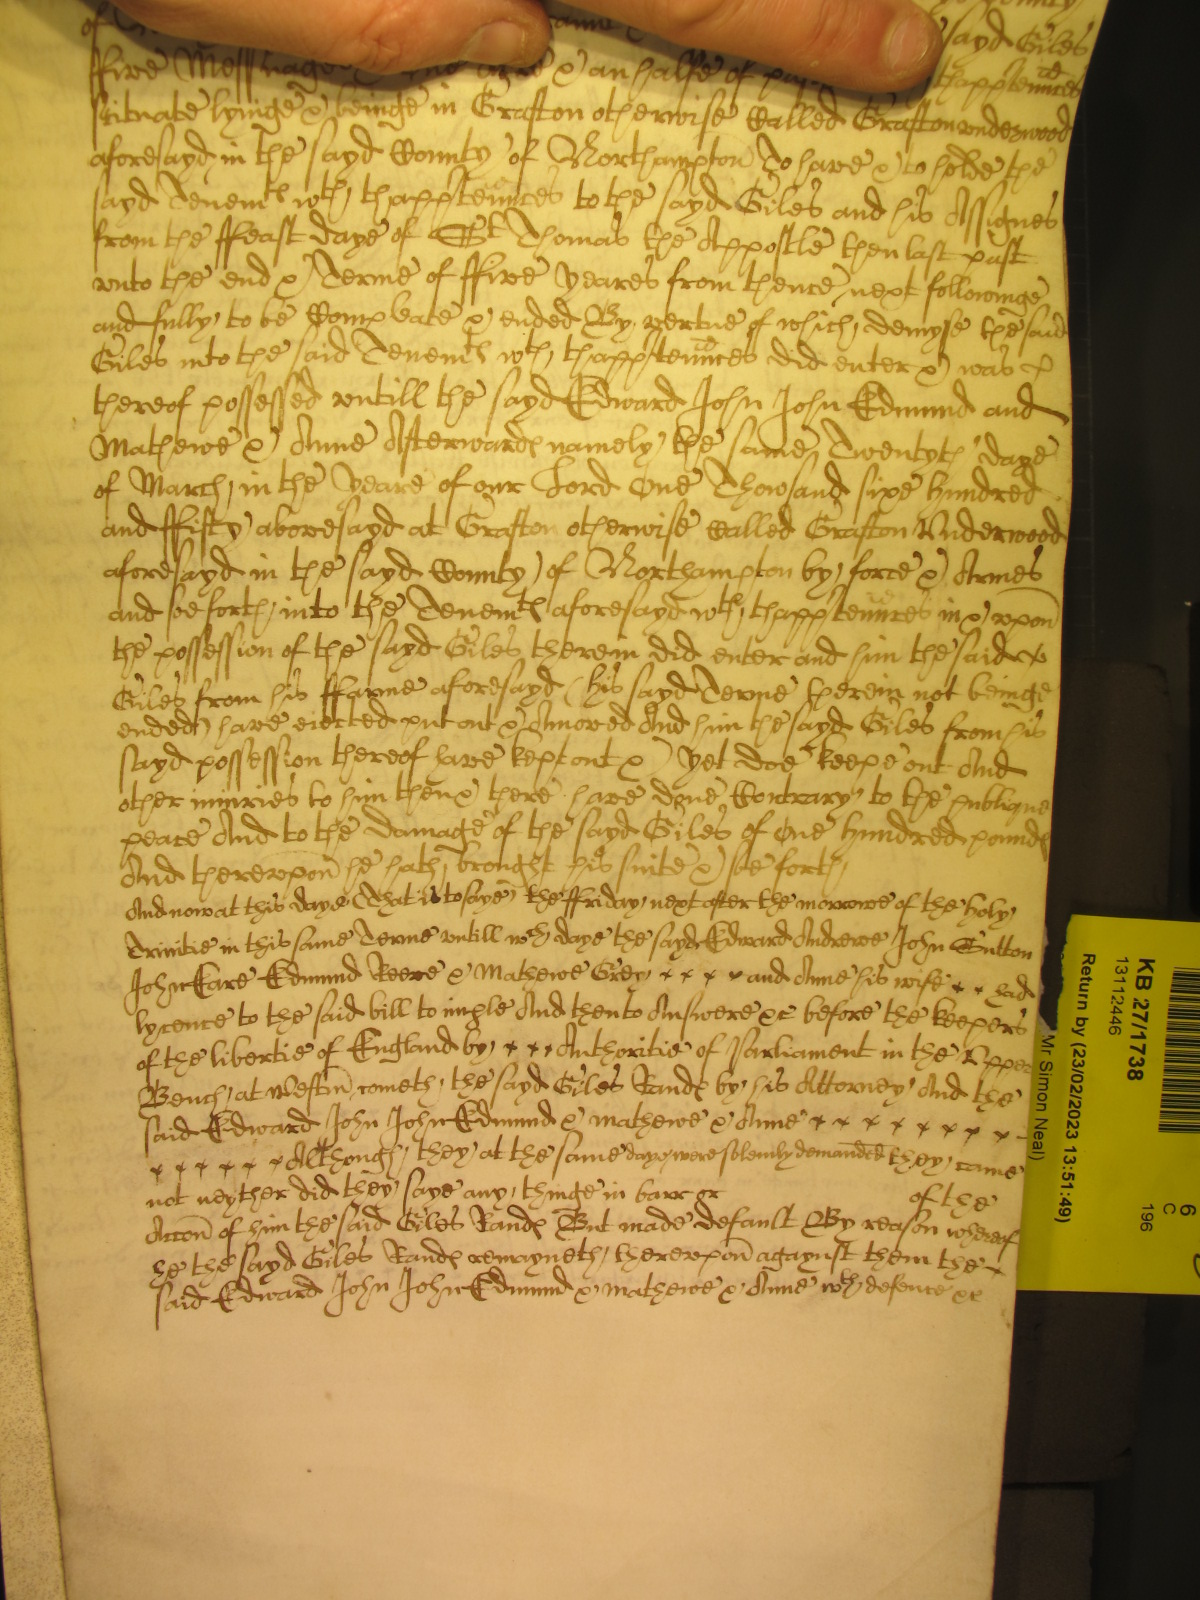 sayd Giles
ffive Messuages & an halfe of thapptennces
scituate lyinge & beinge in Grafton otherwise Called Grafton underwood
aforesayd in the sayd County of Northampton To have & to holde the
sayd Tenemts wth thapptennces to the sayd Giles and his Assignes
from the ffeast daye of St Thomas the Appostle then last past
unto the end & Terme of ffive yeares from thence next followinge
and fully to be Compleate & ended By vertue of which demyse the said
Giles into the said Tenemts wth thapptennces did enter & was
thereof possessed untill the sayd Edward John John Edmund and
Mathewe & Anne Afterwards namely the same Twentyth daye
of March in the yeare of our Lord One Thowsand sixe hundred
and ffifty abovesayd at Grafton otherwise Called Grafton Underwood
aforesayd in the sayd County of Northampton by force & Armes
and soe forth into the Tenemts aforesayd wth thapptennces in & upon
the possession of the sayd Giles therein did enter and him the said
Giles from his ffarme aforesayd (his sayd Terme therein not beinge
ended) have eiected put out & Amoved And him the sayd Giles from his
sayd possession thereof have kept out & yet doe keepe out And
other iniuries to him then & there have done Contrary to the publique
peace And to the damage of the sayd Giles of One hundred pounds
And thereupon he hath brought his suite & soe forth
And now at this daye That is to saye the ffriday next after the morrowe of the holy
Trinitie in this same Terme untill wch daye the sayd Edward Andrewe John Sutton
John Eare Edmund Reeve & Mathewe Grey and Anne his wife had
lycence to the said bill to imple And then to Answere &c before the keepers
of the libertie of England by Authoritie of Parliament in the Upper
Bench at Westm cometh the sayd Giles Rands by his Attorney And the
said Edward John John Edmund & Mathewe & Anne
Although they at the same daye were solemly demanded they came
not neyther did they saye any thinge in barr or of the
Accon of him the said Giles Rands But made default By reason whereof
he the sayd Giles Rands remayneth thereupon agaynst them the
said Edward John John Edmund & Mathewe & Anne wth defence &c
KB 27/1738
13112446
Return by (23/02/2023 13:51:49)
Mr Simon Neal)
6
C
196